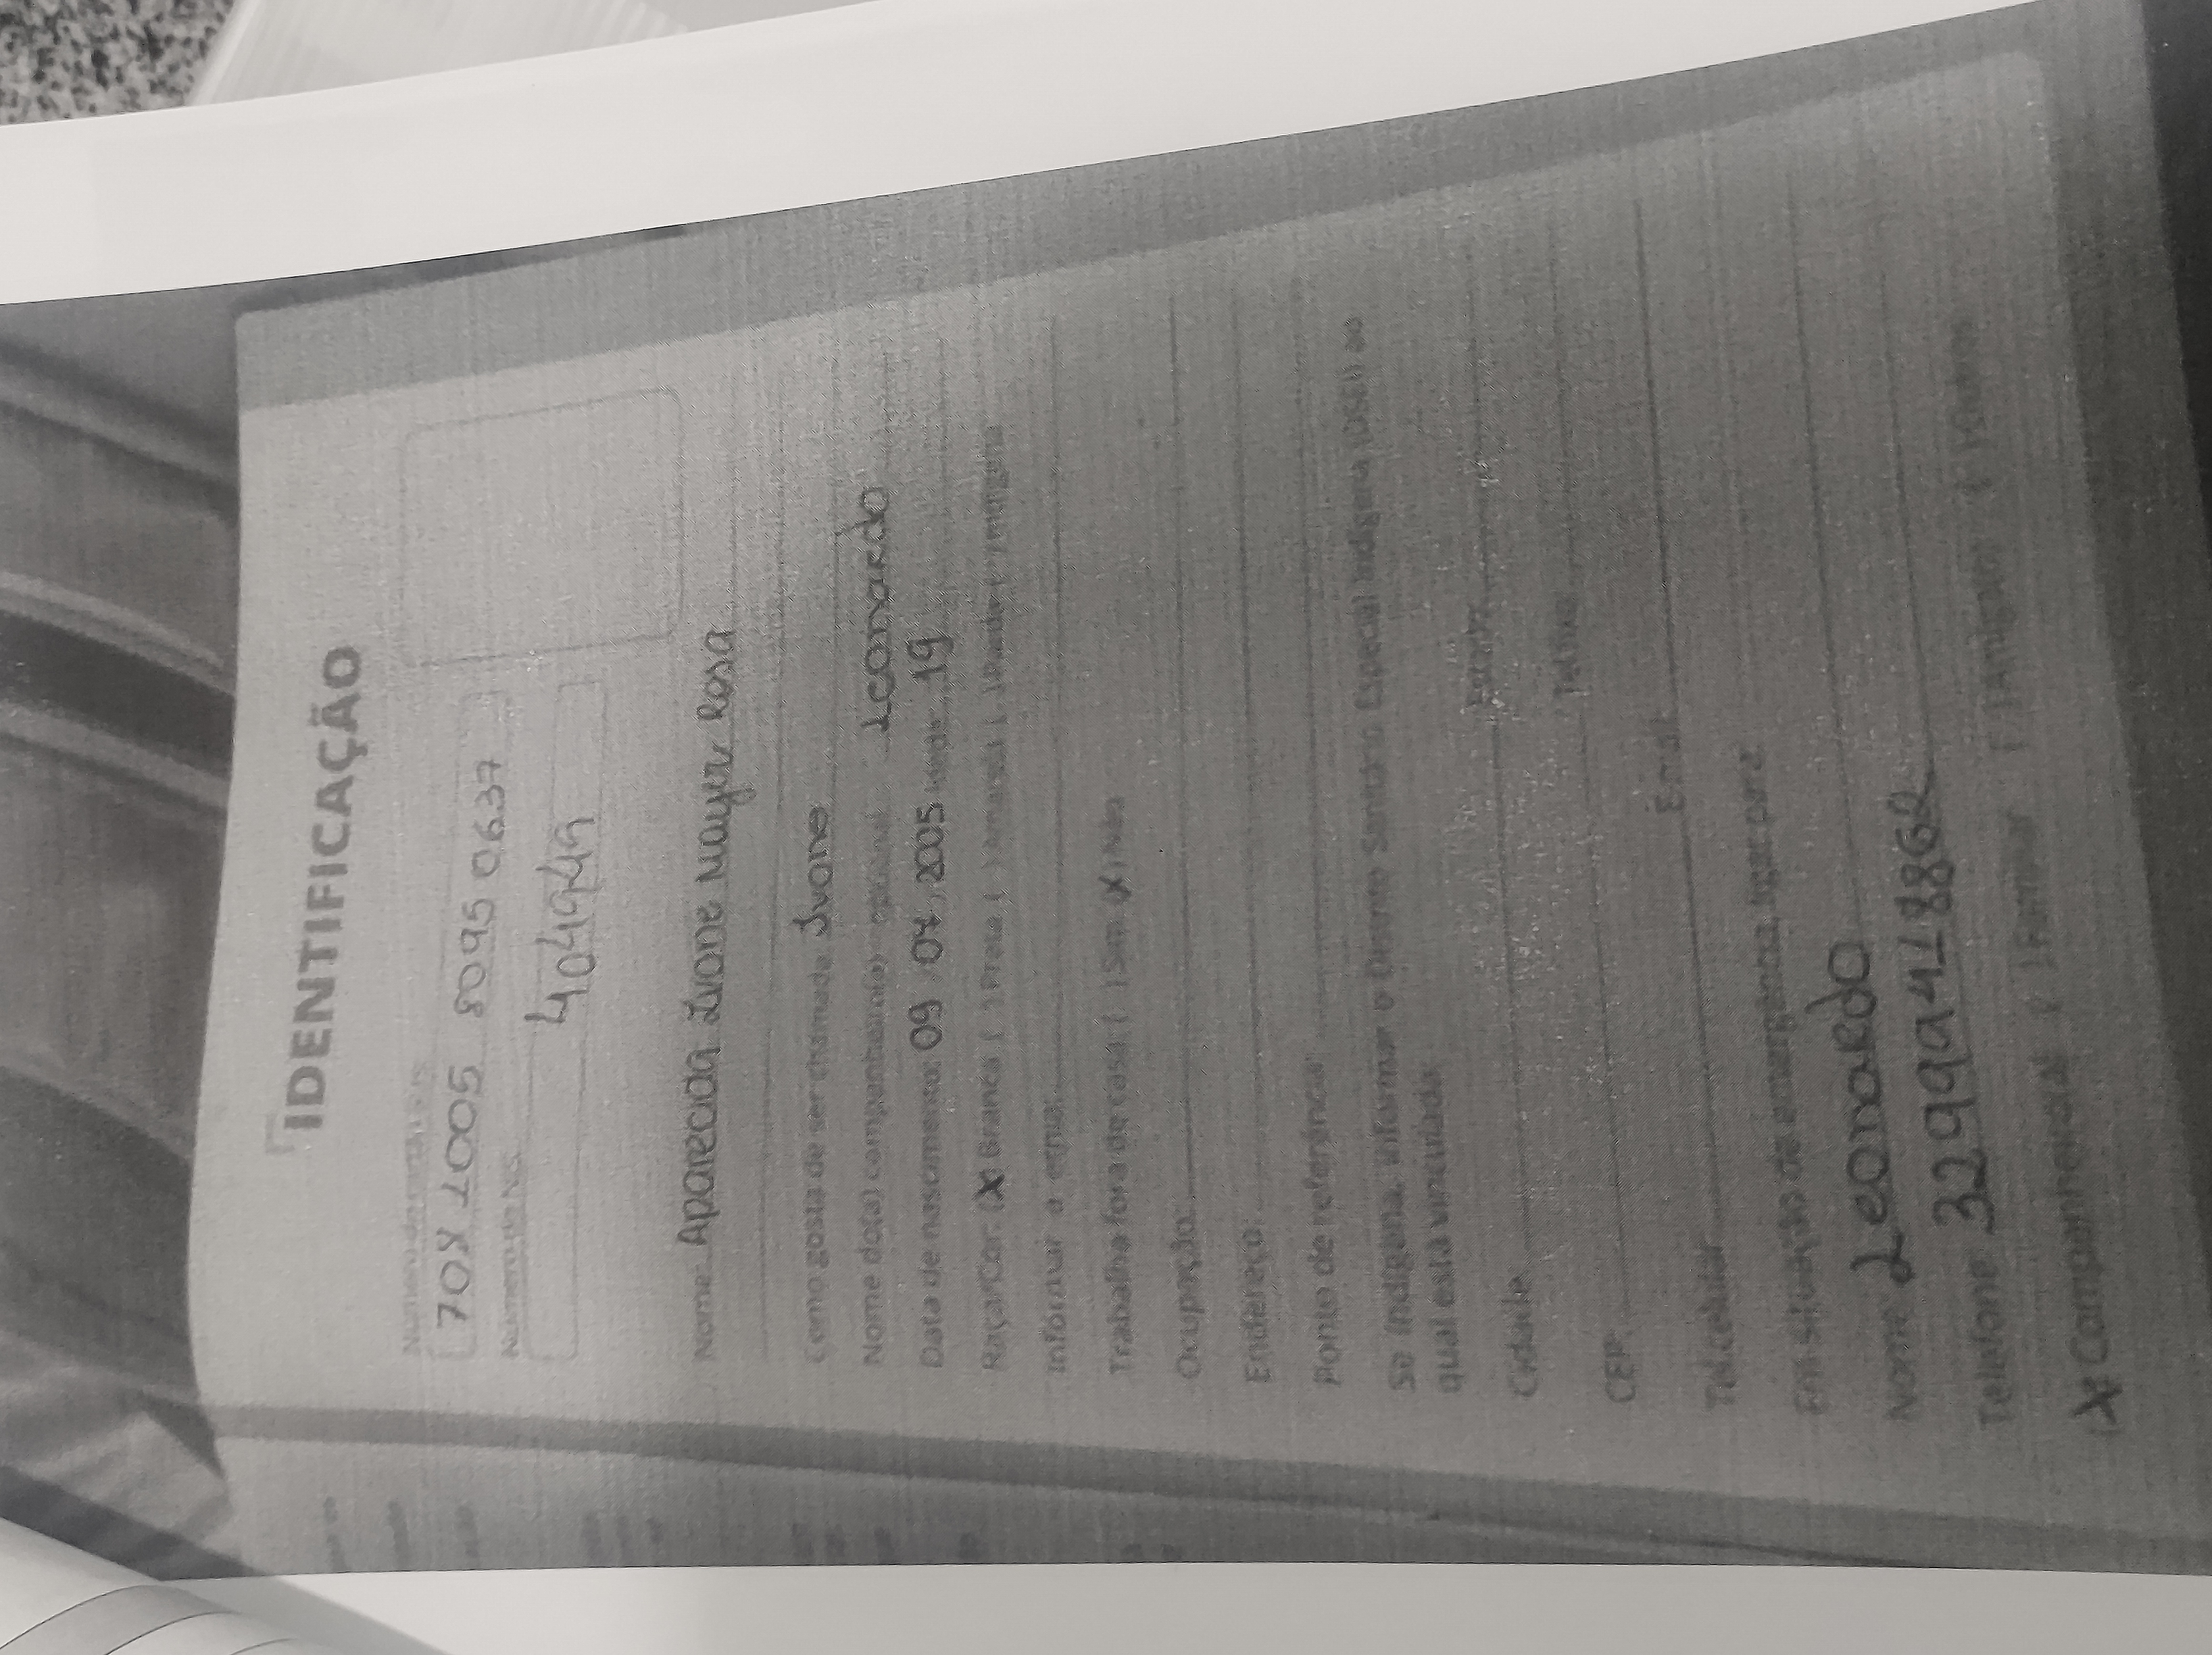 IDENTIFICAÇÃO
Número do cartão SUS
708 1005 8095 0637
Número do NIS
4104949
Nome: Aparecida Ivone Mayer Rosa
Como gosta de ser chamada: Ivone
Nome do(a) companheiro(a) - opcional Leonardo
Data de nascimento: 09 / 07 / 2005 Idade: 19
Raça/Cor: (X) Branca ( ) Preta ( ) Amarela ( ) Parda ( ) Indígena
Informar a etnia:
Trabalha fora de casa: ( ) Sim (X) Não
Ocupação:
Endereço:
Ponto de referência:
Se indígena, informar o Distrito Sanitário Especial Indígena (DSEI) ao
qual está vinculada:
Cidade Estado
CEP Tel.fixo
Tel.celular E-mail
Em situação de emergência, ligar para?
Nome Leonardo
Telefone
(X Companheiro(a) ( ) Familiar ( ) Amigo(a) ( ) Outros